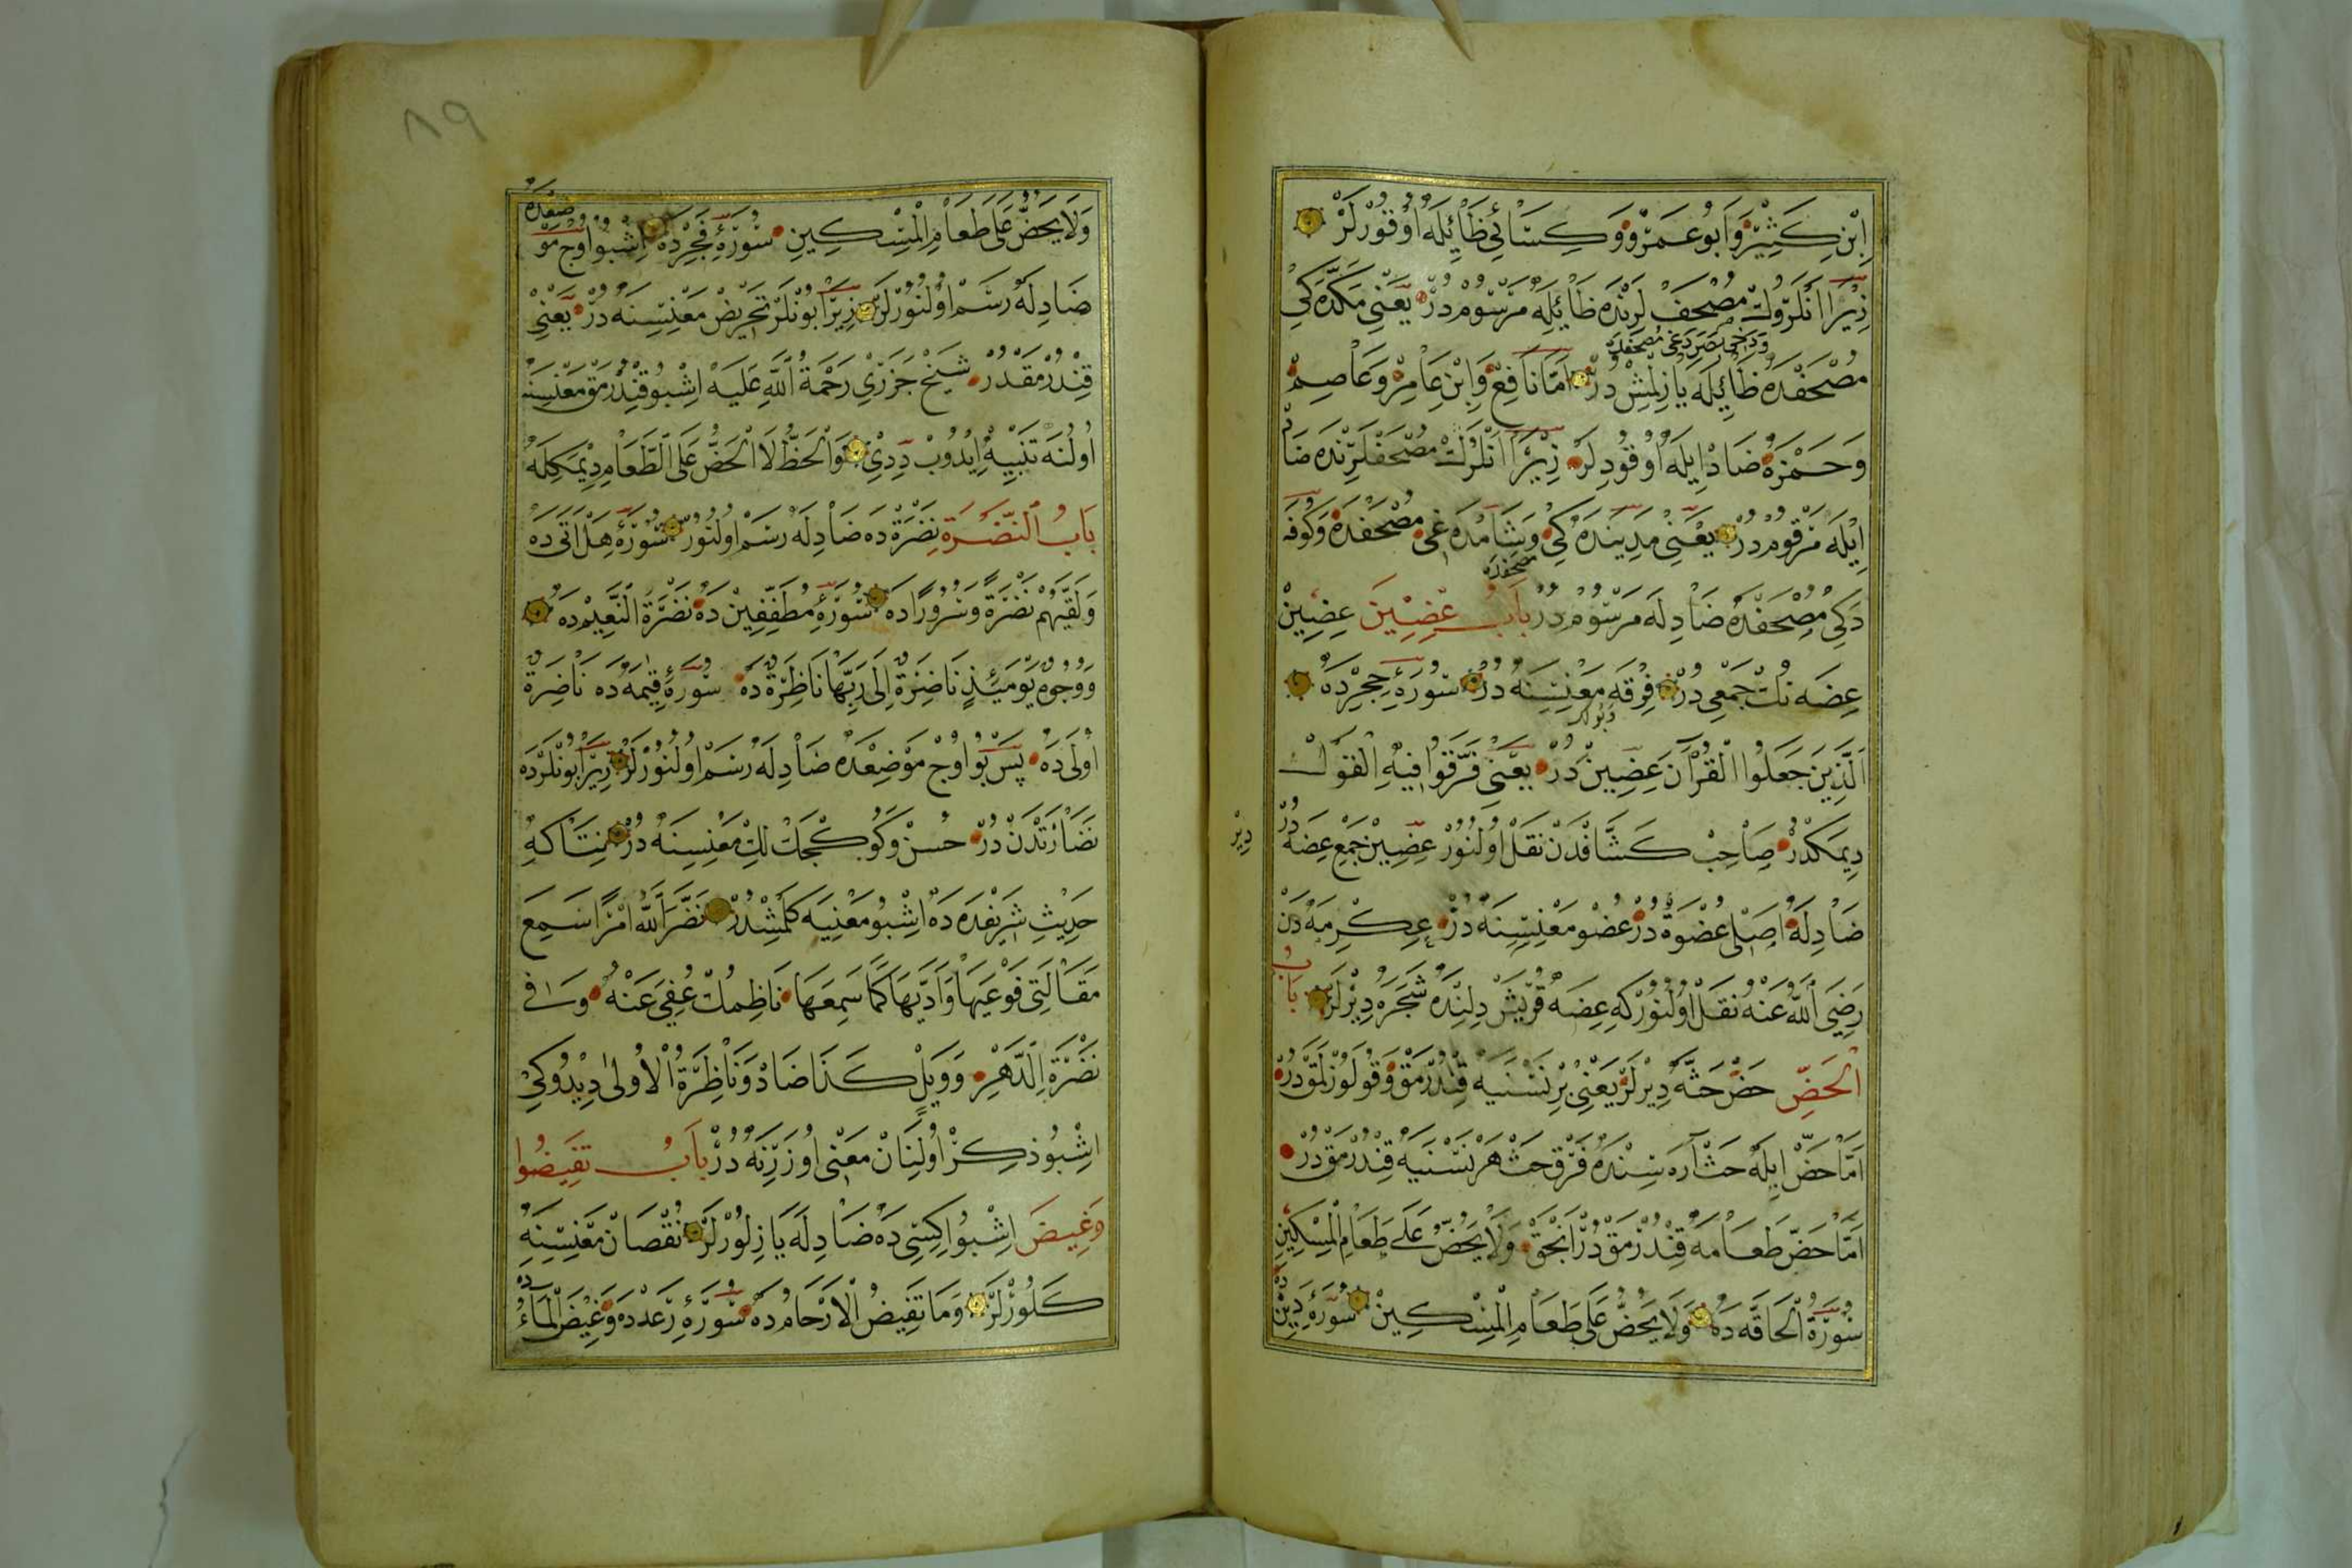 اِبْنِ كَثِيرْ وَاَبُو عَمَرْو وَكِسَائِي ظَائِلَه اُوقُورْلَرْ
زِيرَا اَنْلَرُوكْ مُصْحَفْ لَرِنْدَه ظَائِلَه مَرْسُومْ دُرْ يَعْنِي مَكَّدَه كِي
مُصْحَفْدَه ظَائِيلَه يَازِلْمِشْ دُرْ اَمَّا نَافِعْ وَابْنِ عَامِرْ وَعَاصِمْ
وَحَمْزَه ضَادْ اِيلَه اُوقُودِلَرْ زِيرَا اَنْلَرُكْ مُصْحَفْلَرِنْدَه ضَاد
اِيْلَه مَرْقُومْ دُرْ يَعْنِي مَدِينَدَه كِي وَشَامْدَه غِي مُصْحَفْدَه وَكُوفَه
مصحفده
دَكِي مُصْحَفْدَه ضَادِلَه مَرْسُومْ دُرْ بَابُ عِضِينَ عِضِينْ
عِضَه نُكْ جَمْعِي دُرْ فِرْقَه مَعْنِسِنَه دُرْ سُورَهٔ حِجْرْدَه
اَلَّذِينَ جَعَلُوا الْقُرْآنَ عِضِينَ دُرْ يَعْنِي فَرَّقُوا فِيهِ الْقَوْل
دِيمَكْدُرْ صَاحِبْ كَشَّافْدَنْ نَقْلْ اُولُنُورْ عِضِينْ جَمْعِ عِضَه دُرْ
دِيْر
ضَادِلَه اَصْلِى عُضْوَةْ دُرْ عُضْو مَعْنِسِنَه دُرْ عِكْرِمَه دَنْ
رَضِيَ اللّٰهُ عَنْهُ نَقْلْ اُولُنُورْكِه عِضَه قُرَيْشْ دِلِنْدَه شَجَرَه دِيْرْلَرْ بَابُ
اَلْحَضِّ حَضْ حَثَّه دِيْرْلَرْ يَعْنِي بِرْ نَسْنَيَه قِنْدُرْمَقْ وَقُولَوُزْلَمَقْدُرْ
اَمَّا حَضْ اِيلَه حَثْ آرَه سِنْدَه فَرْقْ حَثْ هَرْ نَسْنَيَه قِنْدُرْمَقْ دُرْ
اَمَّا حَضْ طَعَامَه قِنْدُرْمَقْ دُرْ اَنْجَقْ وَلَا يَحُضُّ عَلَى طَعَامِ الْمِسْكِينِ
سُورَةُ الْحَاقَّه دَه وَلَا يَحُضُّ عَلَى طَعَامِ الْمِسْكِينْ سُورَهٔ دِينْ دَه
٨٩
وَلَا يَحُضُّ عَلَى طَعَامِ الْمِسْكِينِ سُورَهٔ فَجِرْدَه اِشْبُو اُوچ مَوْضِعْدَه
ضَادِلَه رَسْمْ اُولُنُورْلَرْ زِيرَا بُونْلَرْ تَحْرِيضْ مَعْنِيسِنَه دُرْ يَعْنِي
قِنْدُرْمَقْدُرْ شَيْخْ جَزَرِي رَحْمَةُ اللّٰهِ عَلَيْه اِشْبُو قِنْدُرْمَقْ مَعْنِسِنَه
اُولُنَه تَنْبِيه اِيدُوبْ دِدِي وَالْحَظُّ لَا الْحَضُّ عَلَى الطَّعَامِ دِيْمَكِلَه
بَابُ النَّضْرَةِ نَضْرَةْ دَه ضَادِلَه رَسْمْ اُولُنُورْ سُورَهٔ هَلْ اَتَى دَه
وَلَقَّيهُمْ نَضْرَةً وَسُرُورًا دَه سُورَهٔ مُطَفِّفِينْ دَه نَضْرَةَ النَّعِيمْ دَه
وَوُجُوهٌ يَوْمَئِذٍ نَاضِرَةٌ اِلَى رَبِّهَا نَاظِرَةٌ دَه سُورَهٔ قِيٰمَه دَه نَاضِرَةٌ
اُولَى دَه پَسْ بُو اُوچْ مَوْضِعْدَه ضَادِلَه رَسْمْ اُولُنُورْلَرْ زِيرَا بُونْلَرْدَه
نَضَارَتْدَنْ دُرْ حُسْنْ وَكُوكْچَكْ لِكْ مَعْنِسِنَه دُرْ نِتَاكِه
حَدِيثِ شَرِيفْدَه دَه اِشْبُو مَعْنِيَه كَلْمِشْدُرْ نَضَّرَ اللّٰهُ امْرَأً سَمِعَ
مَقَالَتِي فَوَعَيهَا وَاَدَّيهَا كَمَا سَمِعَهَا نَاظِمُكْ عُفِيَ عَنْهُ وَسَا فِي
نَضْرَةِ الدَّهْرِ وَوَيْلٍ كَذَا ضَادْ وَنَاظِرَةُ الْاُولَى دِيْدُوكِي
اِشْبُو ذِكْرْ اُولِنَانْ مَعْنَى اُوزَرِنَه دُرْ بَابُ تَغِيضُوا
وَغِيضَ اِشْبُو اِكِيسِي دَه ضَادِلَه يَازِلُورْلَرْ نُقْصَانْ مَعْنِسِنَه
كَلُورْلَرْ وَمَا تَغِيضُ الْاَرْحَامُ دَه سُورَهٔ رَعْدْدَه وَغِيضَ الْمَاءُ دَه